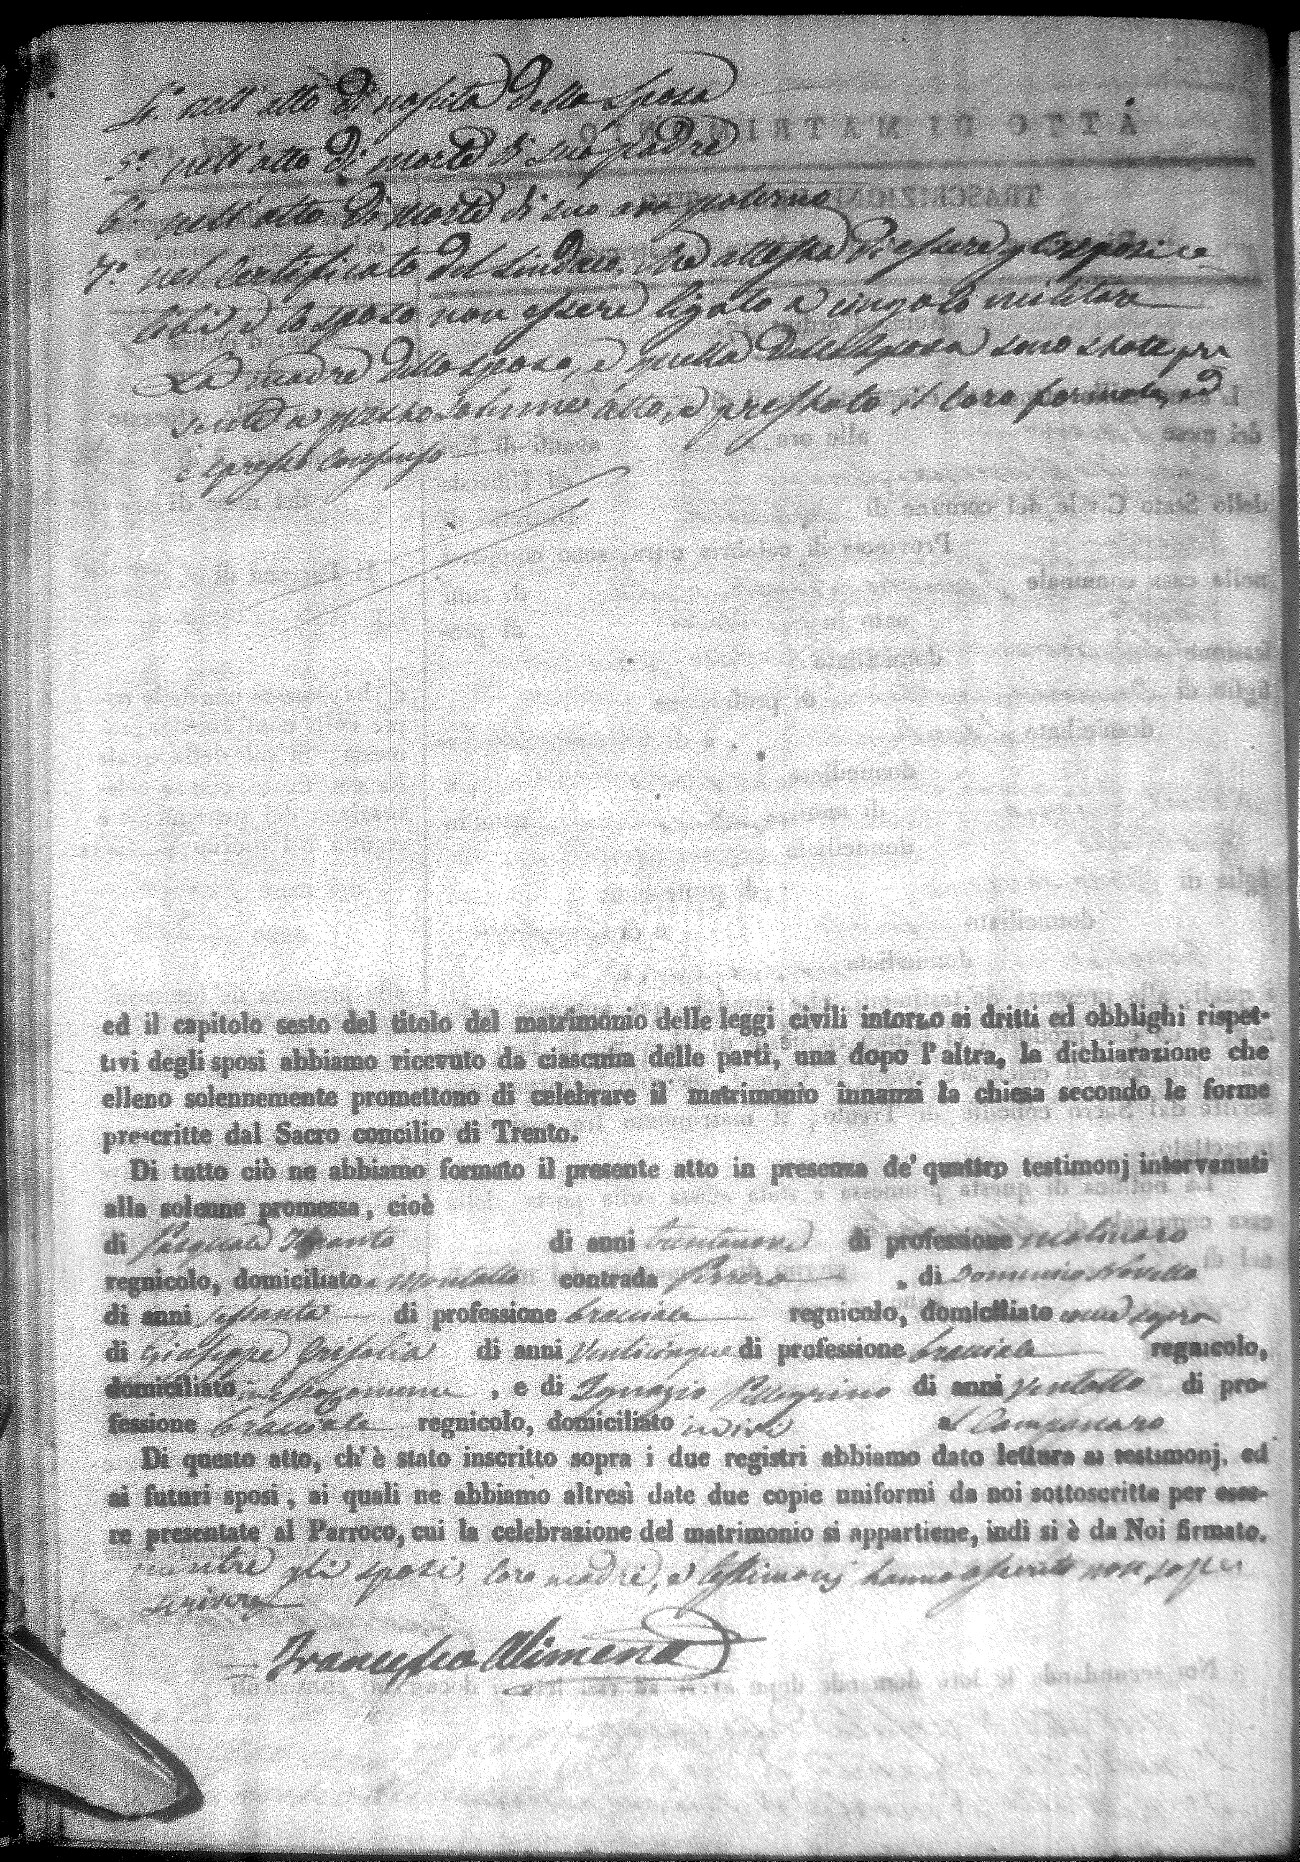 4.° nell'atto di nascita della Sposa
5.° nell'atto di morte di suo padre
6.° nell'atto di morte di suo avo paterno
7.° nel Certificato del Sindaco, che attesta di essere gli sposi ce
libi, e lo sposo non essere ligato a vingolo militare
La madre dello sposo, e quella della sposa sono state pre
senti a questo atto, e prestato il loro formale, ed
espresso consenso
ed il capitolo sesto del titolo del matrimonio delle leggi civili intorno ai dritti ed obblighi rispet-
tivi degli sposi abbiamo ricevuto da ciascuna delle parti, una dopo l'altra, la dichiarazione che
elleno solennemente promettono di celebrare il matrimonio innanzi la chiesa secondo le forme
prescritte dal Sacro concilio di Trento.
Di tutto ciò ne abbiamo formato il presente atto in presenza de' quattro testimonj intervenuti
alla solenne promessa, cioè
di Pasquale di anni trentanove di professione molinaro
regnicolo, domiciliato a Montalto contrada , di Domenico
di anni sessanta di professione bracciale regnicolo, domiciliato come sopra
di Giuseppe Grisolia di anni venticinque di professione bracciale regnicolo,
domiciliato , e di Ignazio Pellegrino di anni ventotto di pro-
fessione bracciale regnicolo, domiciliato ivi
Di questo atto, ch'è stato inscritto sopra i due registri abbiamo dato lettura ai testimonj, ed
ai futuri sposi, ai quali ne abbiamo altresì date due copie uniformi da noi sottoscritte per esse-
re presentate al Parroco, cui la celebrazione del matrimonio si appartiene, indi si è da Noi firmato.
mentre gli sposi, loro madre, e testimonj hanno asserito non saper
scrivere
Francesco Alimena